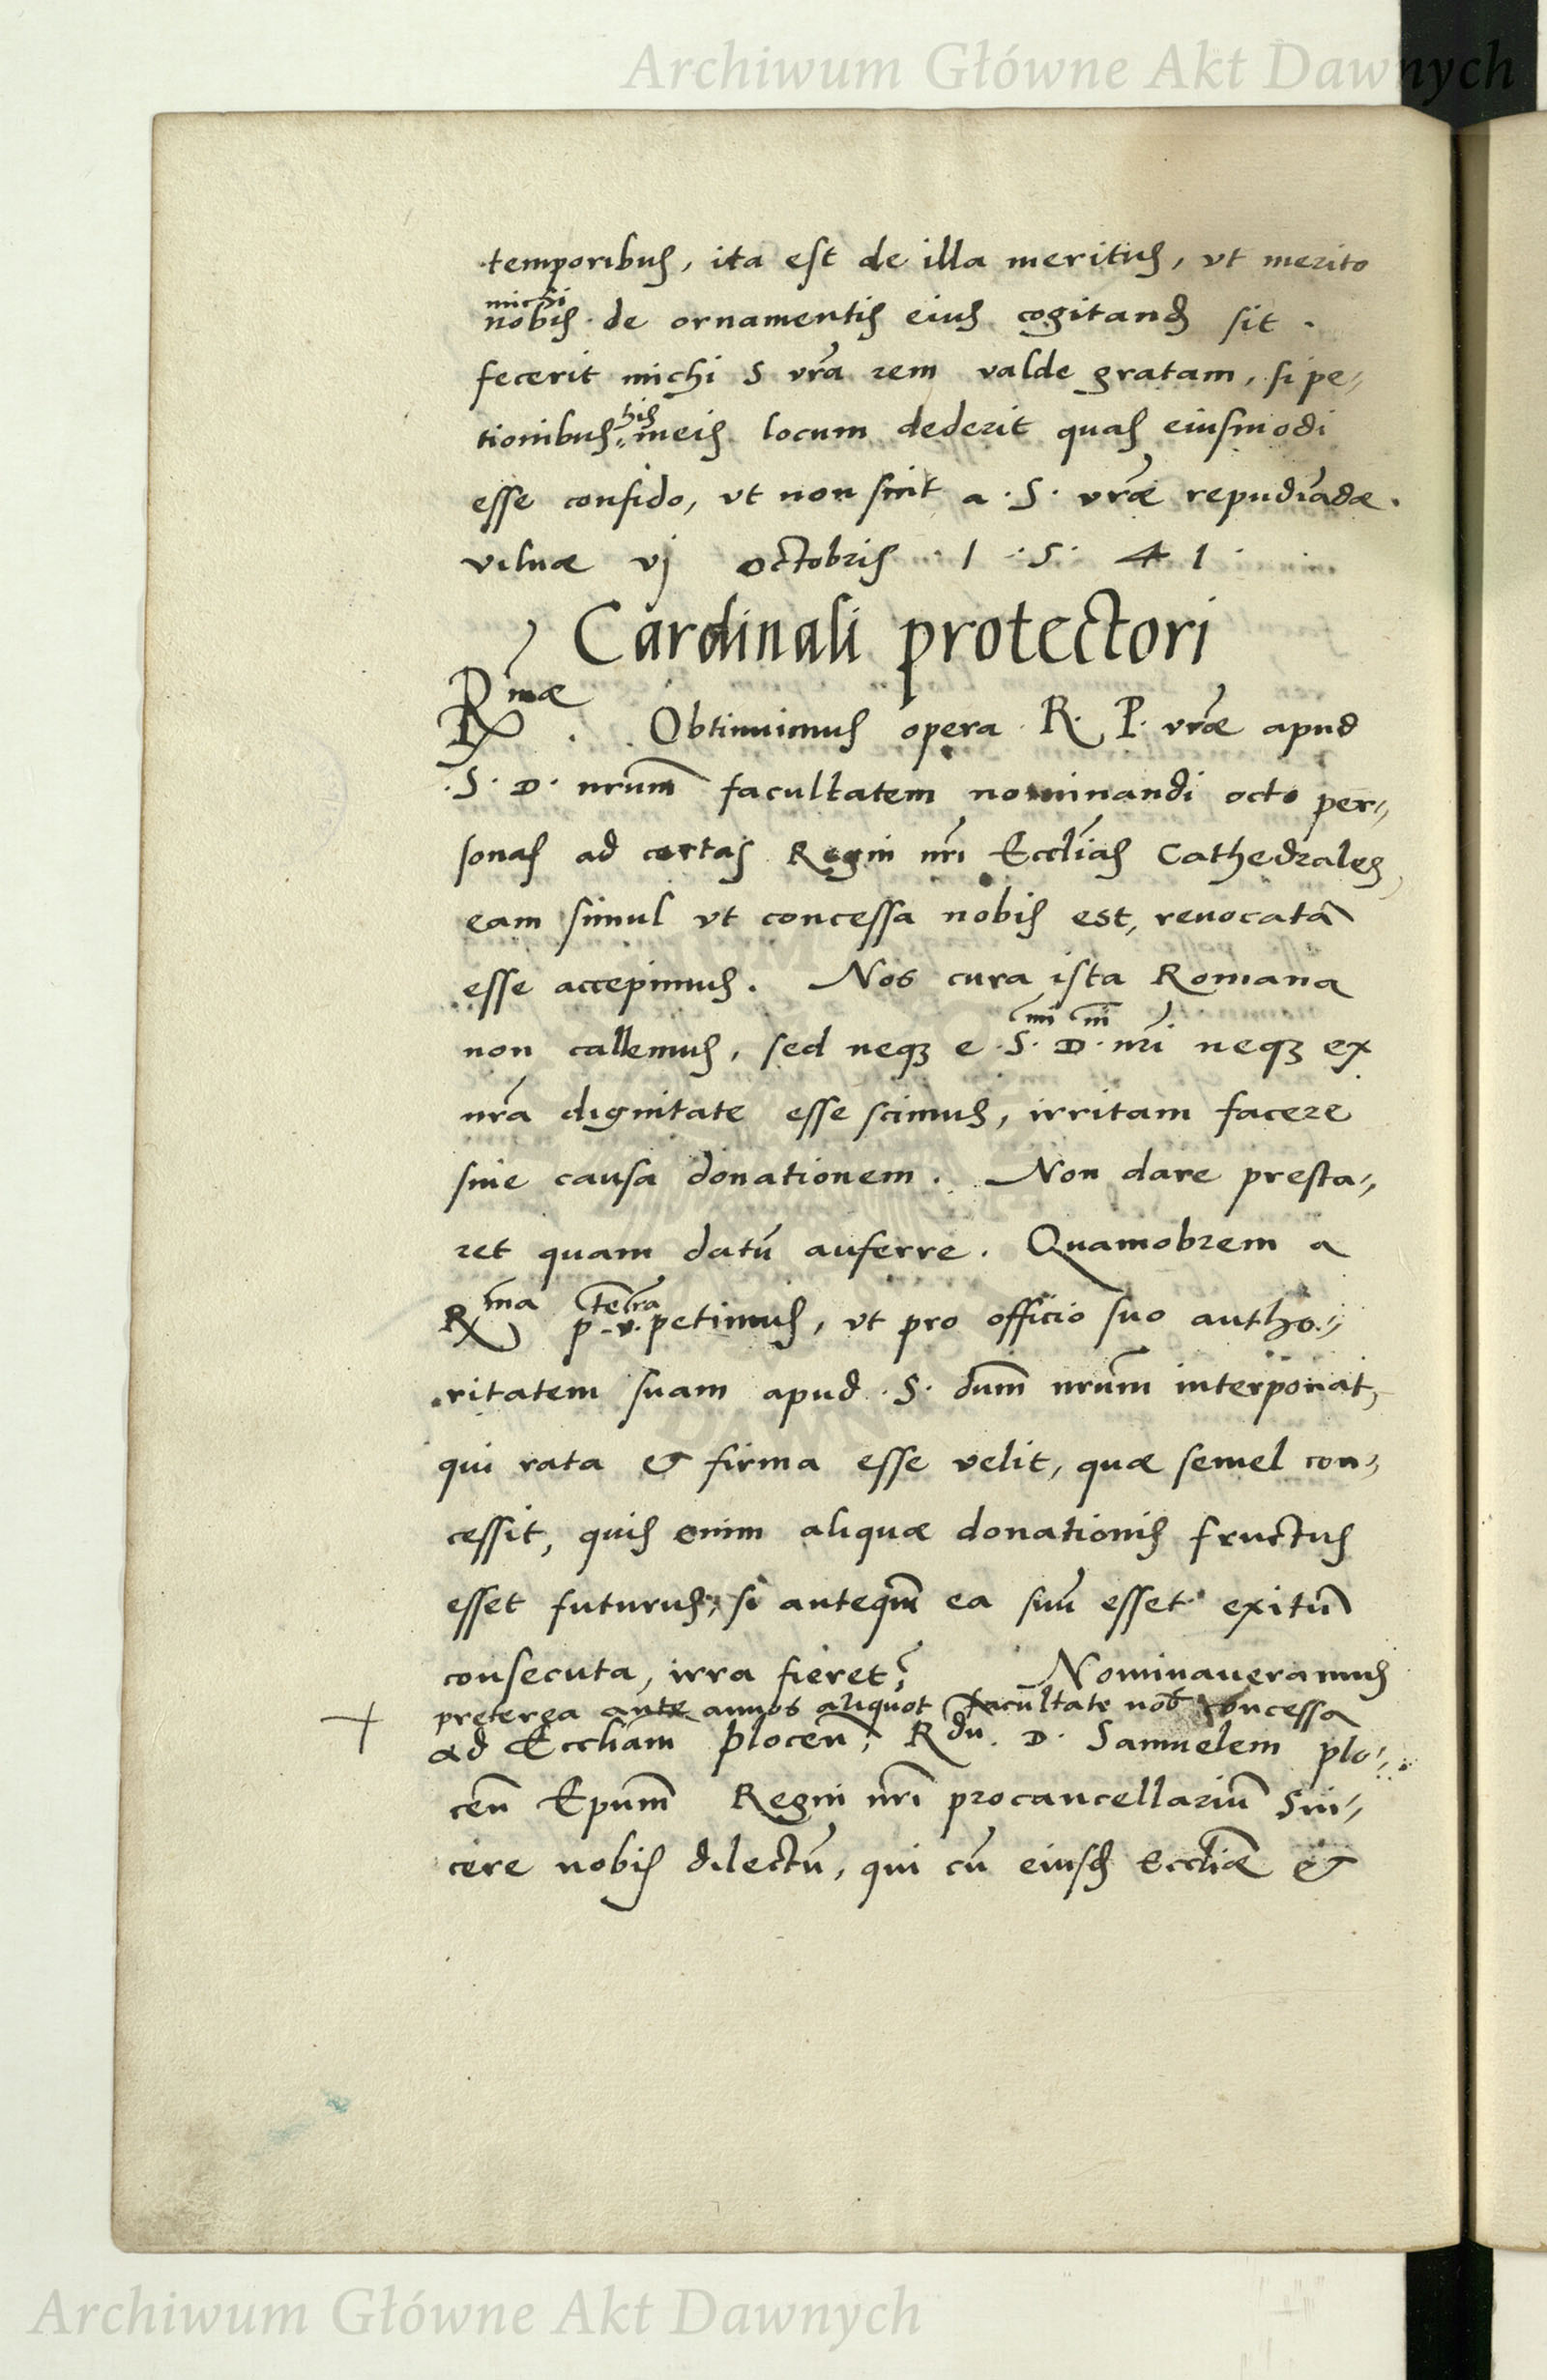 Archiwum Główne Akt Dawnych
temporibus, ita est de illa meritus, ut merito
michi
nobis de ornamentis eius cogitand sit.
fecerit michi S vrã rem valde gratam, si pe„
his
tionibus meis locum dederit quas eiusmodi
esse confido, ut non sint a S. vræ repudiãdæ.
vilnæ vj octobris 1 . 5 . 4 1
Cardinali protectori
Rmæ . Obtinuimus opera R. P. vræ apud
S. D. nrum facultatem nominandi octo per„
sonas ad certas Regni nri Ecclias Cathedrales
eam simul ut concessa nobis est, reuocatã
esse accepimus. Nos cura ista Romana
non callemus, sed neqз e S.mi D.ni nri neqз ex
nrã dignitate esse scimus, irritam facere
sine causa donationem. Non dare presta„
ret quam datũ auferre. Quamobrem a
Rma p.te v.ra petimus, ut pro officio suo autho„
ritatem suam apud S. dum nrum interponat,
qui rata & firma esse velit, quæ semel con„
cessit, quis enim aliquæ donationis fructus
esset futurus, si anteqm ea suũ esset exitũ
consecuta, irra fieret? Nominaueramus
preterea ante annos aliquot facultate nob concessa
ad Eccliam plocen, Rdu. D. Samuelem plo„
cen Epum Regni nri procancellariũ Sin„
cere nobis dilectũ, qui cũ eiusd Eccliæ &
Archiwum Główne Akt Dawnych